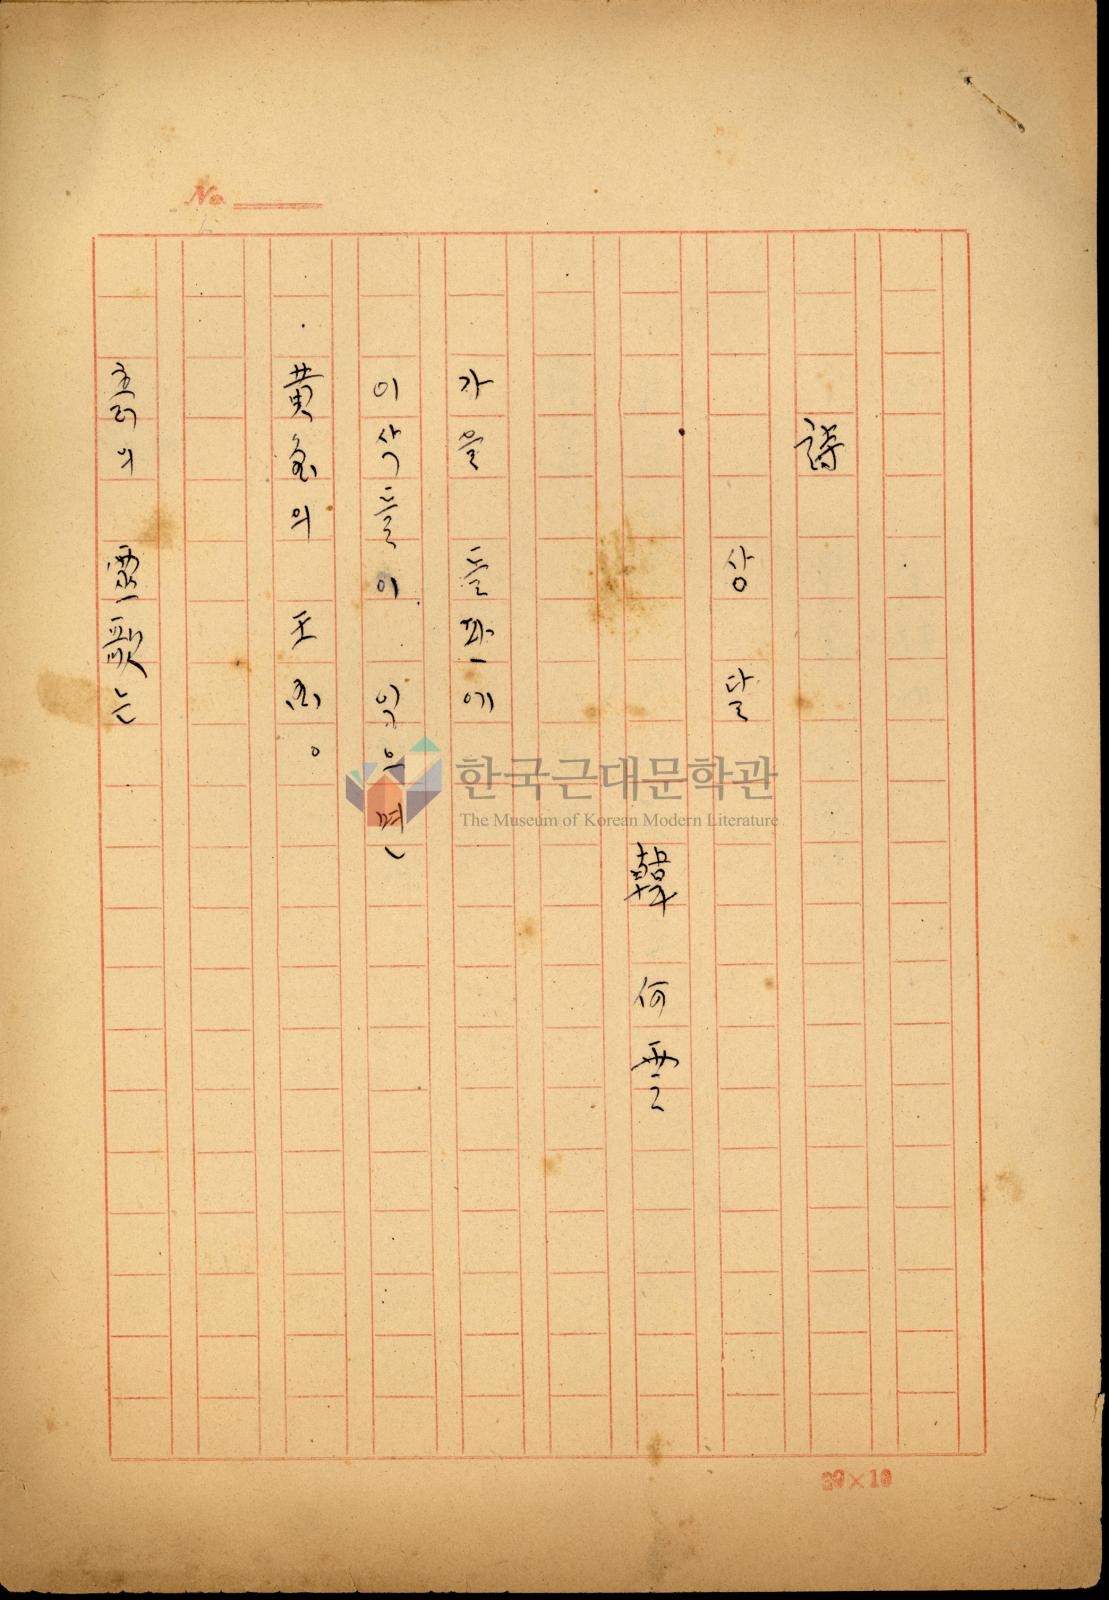 No.
詩
상 달
韓 何雲
가을 들판에
이삭들이 익으면
黃金의 王國。
흙의 靈歌는
20×10
한국근대문학관
The Museum of Korean Modern Literature